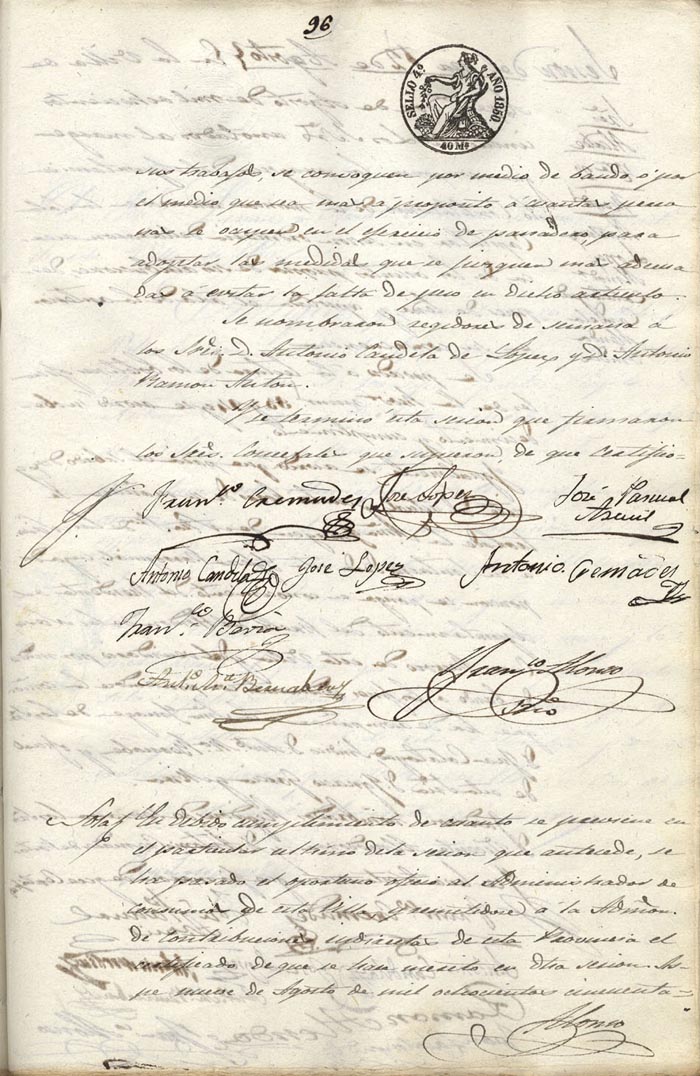 96
SELLO 4º AÑO 1850.
40 Ms
sus trabajos, se convoquen por medio de bando, ó por
el medio que sea mas a proposito á cuantas perso
nas se ocupen en el ejercicio de panadero, para
adoptar las medidas que se juzguen mas adecua
das á evitar la falta de peso en dicho articulo.
Se nombraron regidores de semana á
los Sres. D. Antonio Candela de Lopez y D. Antonio
Ramon Anton.
Y se terminó esta sesion que firmaron
los Sres. Concejales que supieron, de que certifico.
Franco Cremades José Lopez José Pascual
Asencil
Antonio Candela José Lopez Antonio Cremádes
Franco
Anto Bernabeu
Franco Alonso
Srio
Nota En debido cumplimiento de cuanto se previene en
el particular ultimo de la sesion que antecede, se
ha pasado el oportuno oficio al Administrador de
consumos de esta Villa y remitidose a la Admon.
de Contribuciones indirectas de esta Provincia el
certificado de que se hace merito en dha sesion. As
pe nueve de Agosto de mil ochocientos cincuenta.
Alonso